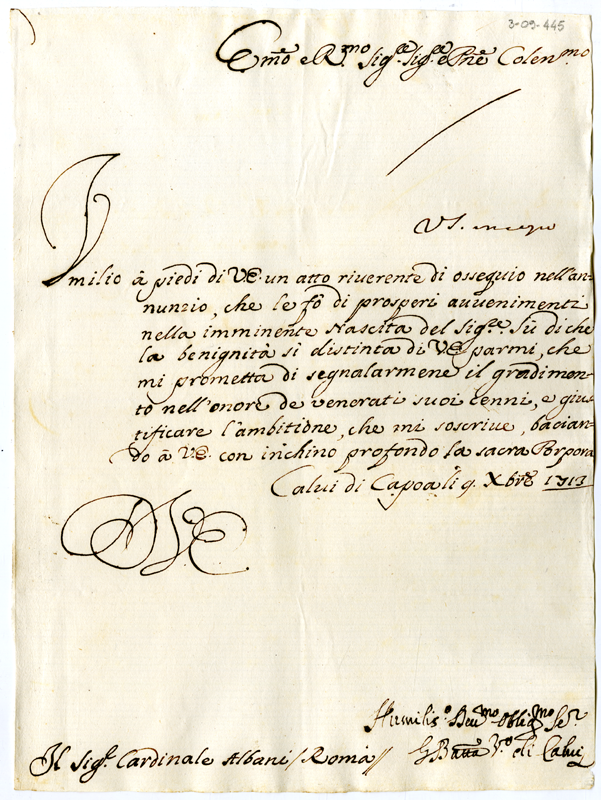 3-09-445
Emõ e R.mo Sig.re Sig.re e Pnẽ Colen.mo
Vmilio à piedi di VE. un atto riverente di ossequio nell'an-
nunzio, che le fò di prosperi avvenimenti
nella imminente Nascita del Sig.re. Sù di che
la benignità sì distinta di VE parmi, che
mi prometta di segnalarmene il gradimen-
to nell'onore de venerati suoi cenni, e gius
tificare l'ambitione, che mi soscrive, bacian-
do à VE. con inchino profondo la sacra Porpora
Calvi di Capoa li 9. Xbrẽ 1713
Humilis.o Deu.mo Oblig.mo Se.r
Il Sig.r Cardinale Albani / Roma // G Batta V.o di Calvi